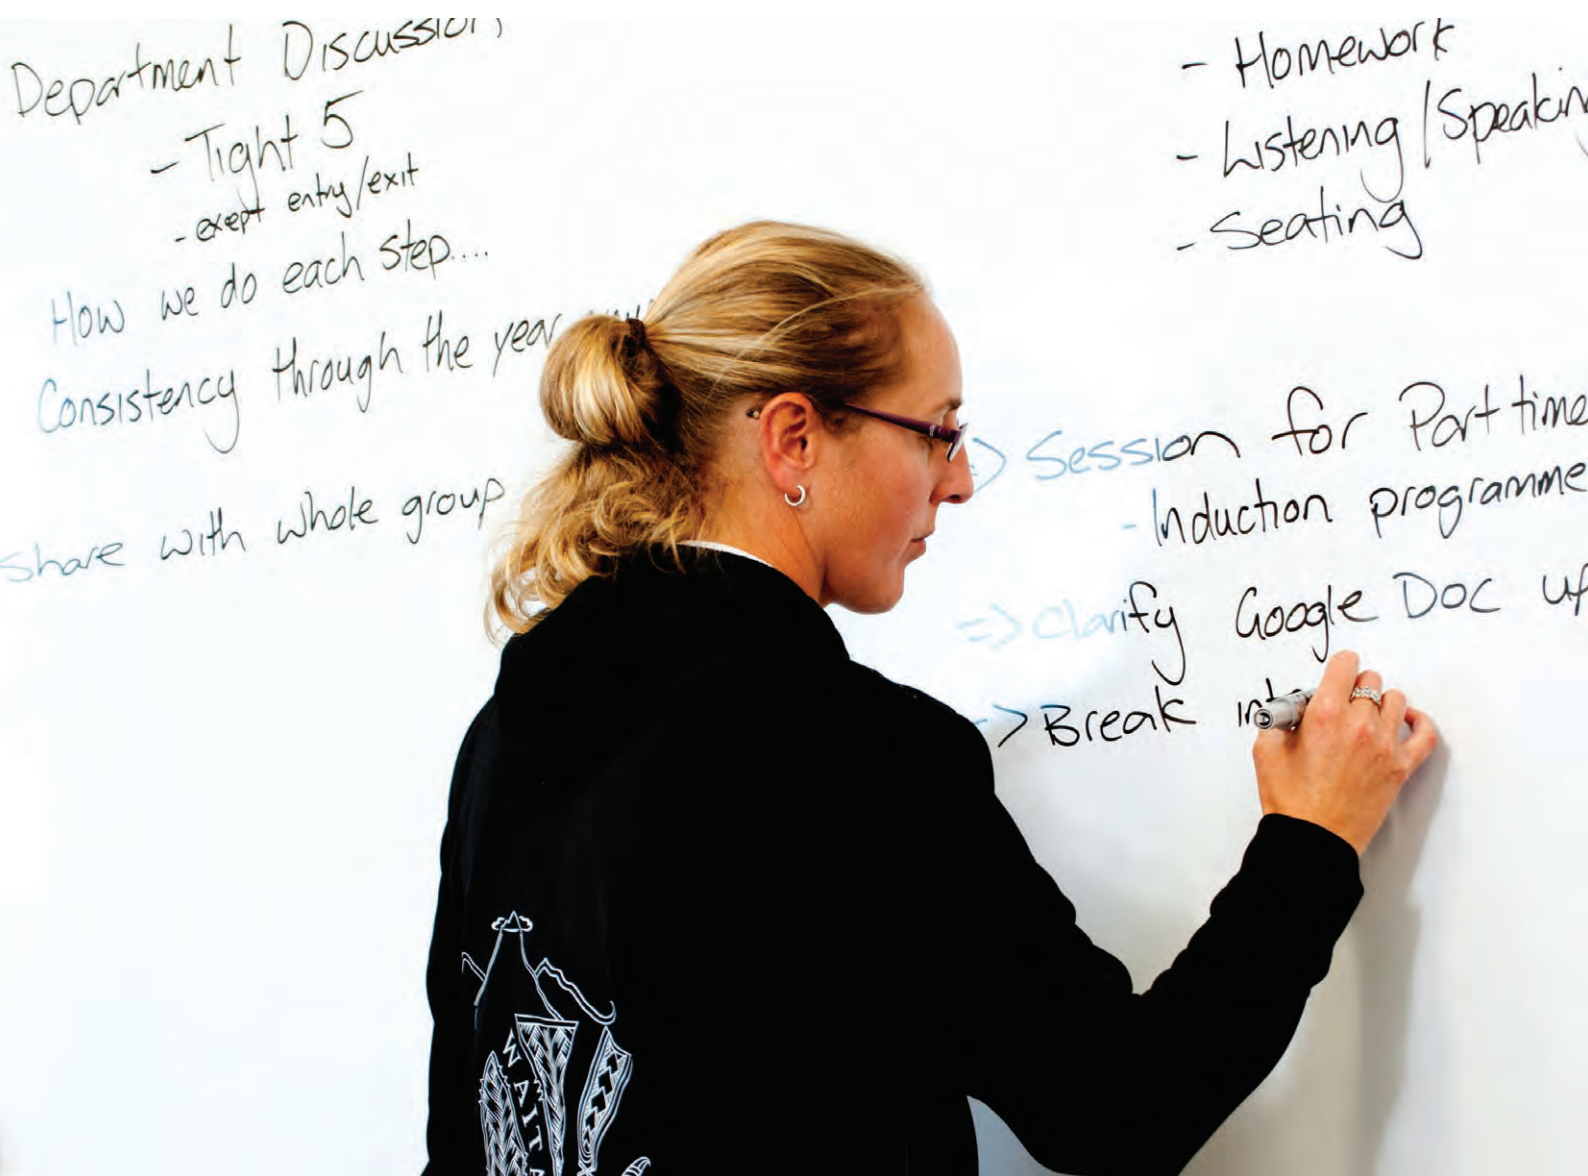 Department Discussion
- Tight 5
- exept entry/exit
How we do each step....
Consistency through the year
share with whole group
- Homework
- Listening/Speaking
- Seating
=> Session for Part time
- Induction programme
=> Clarify Google Doc up
=> Break into
WAITA